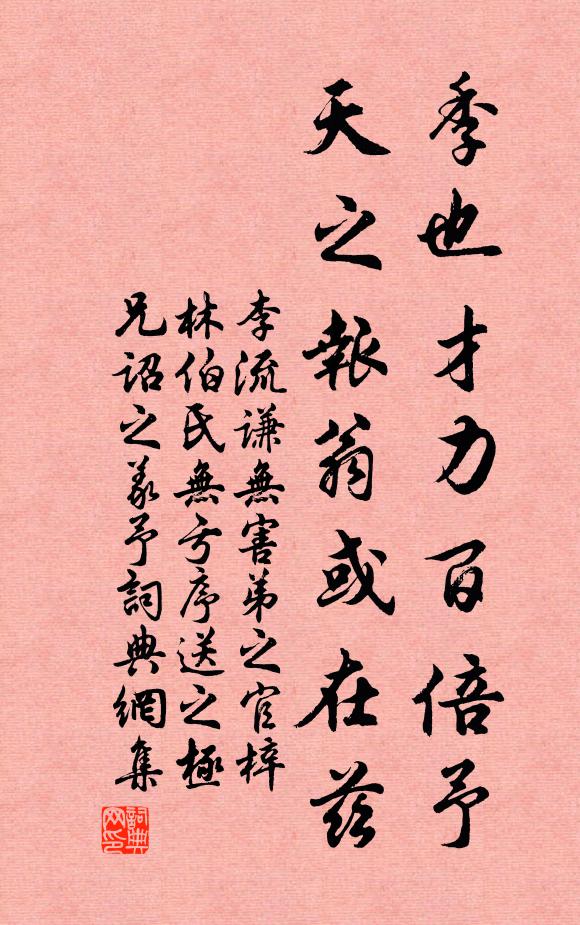 季也才力百倍予
天之報翁或在茲
李流謙無害弟之官梓
林伯氏無亏序送之極
兄詔之義予詞典網集
詞典网印